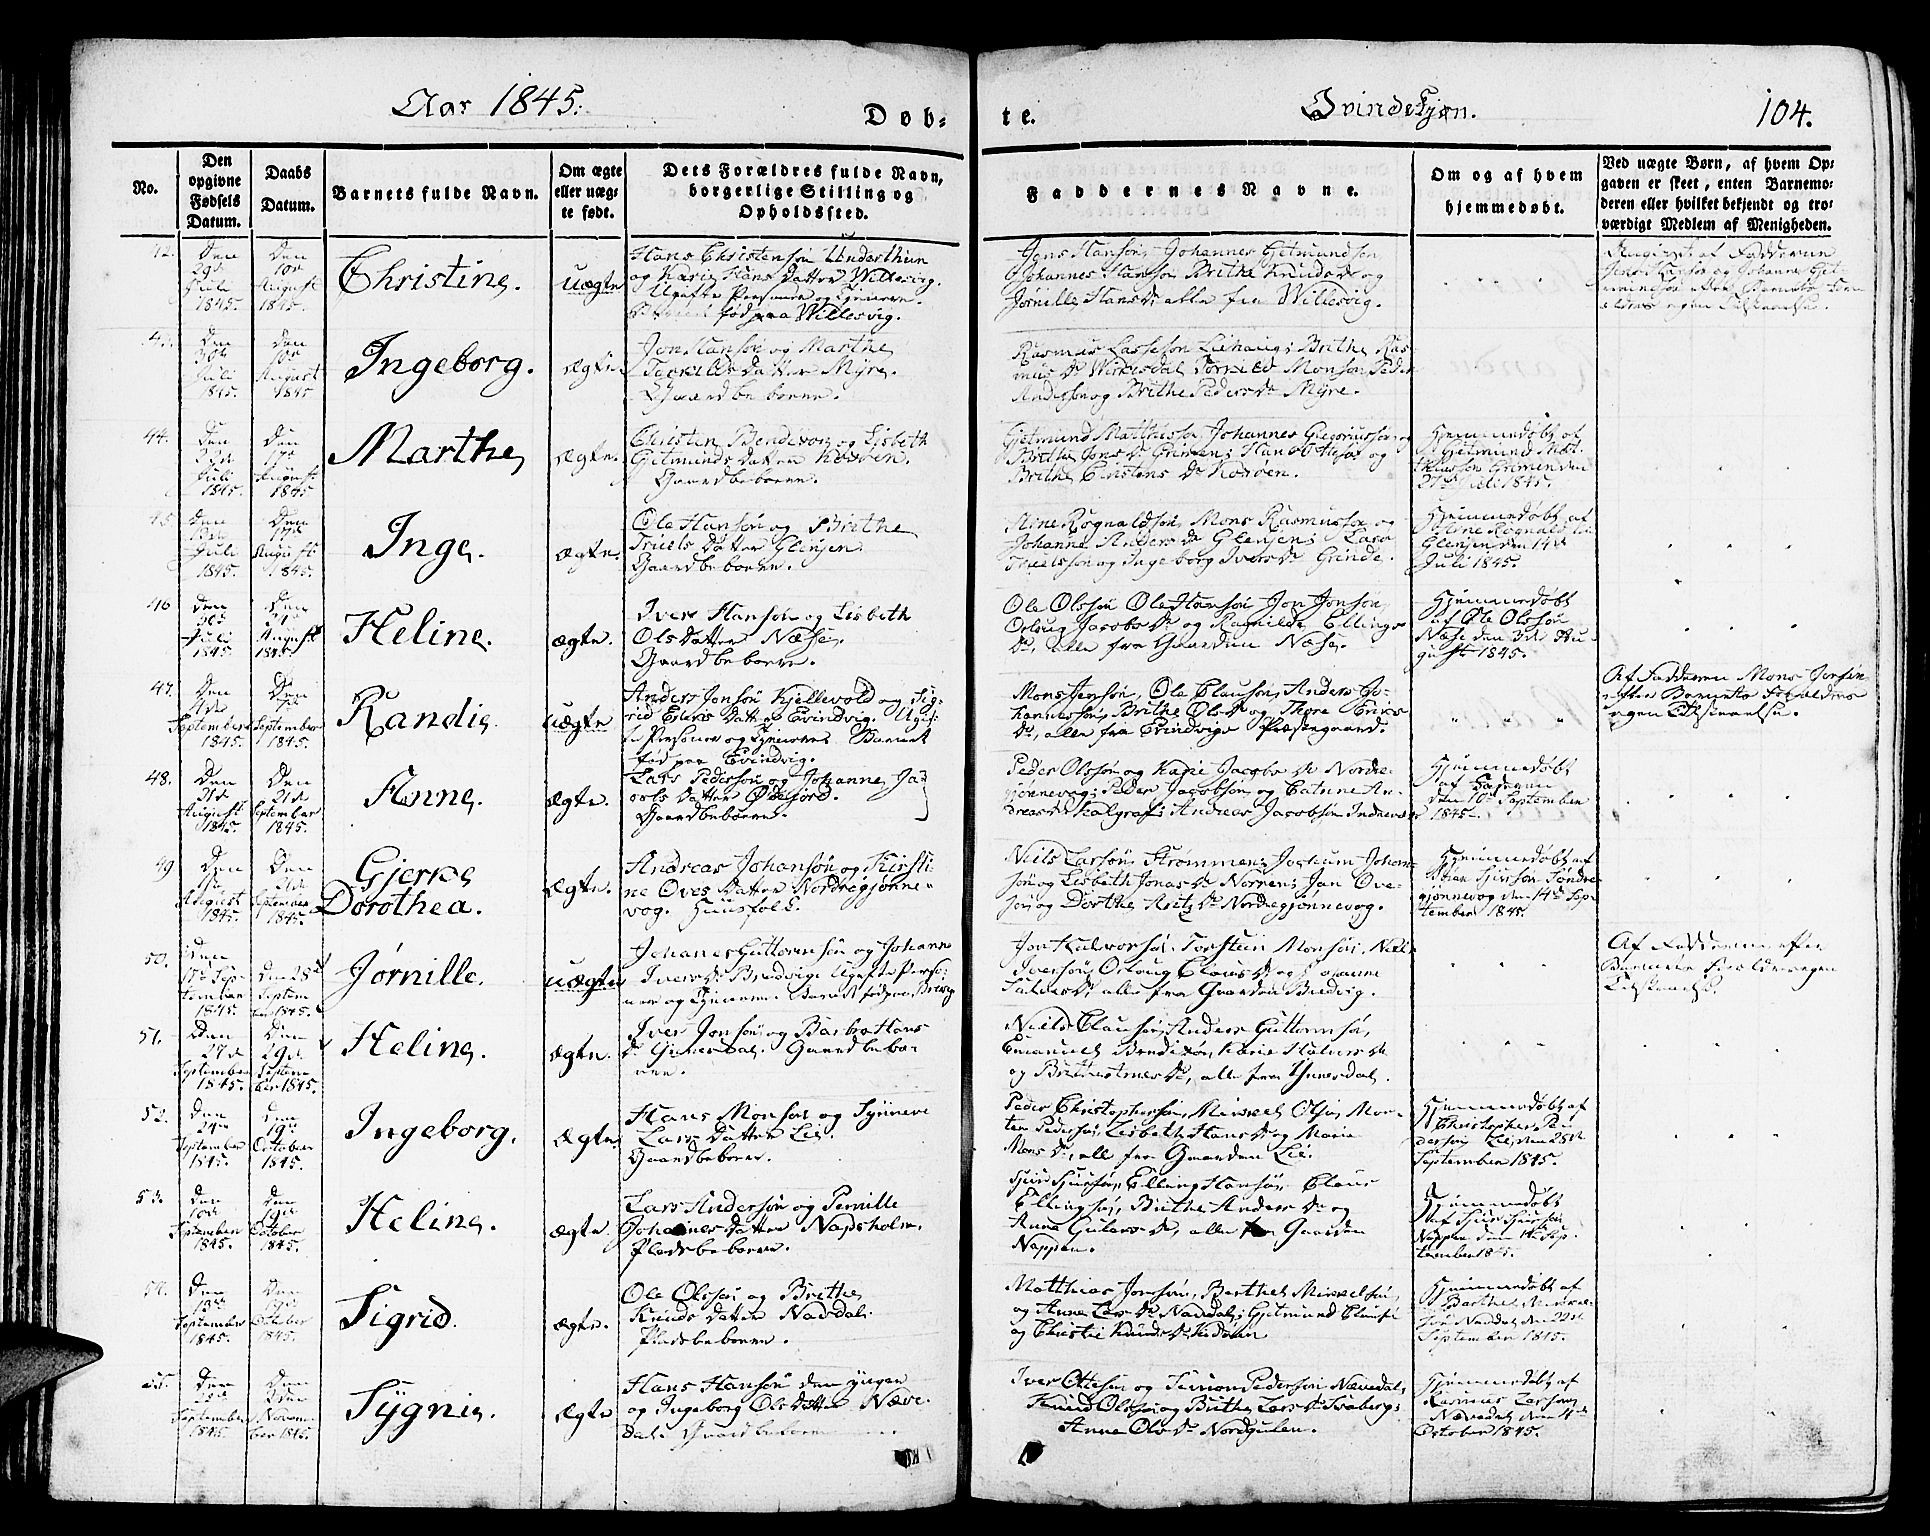 Aar 1845.
Døb-
te.
Qvindekjøn.
104.
No.
Den
opgivne
Fødsels
Datum.
Daabs
Datum.
Barnets fulde Navn.
Om ægte
eller uæg-
te født.
Dets Forældres fulde Navn,
borgerlige Stilling og
Opholdssted.
Faddernes Navne.
Om og af hvem
hjemmedøbt.
Ved uægte Børn, af hvem Op-
gaven er skeet, enten Barnemo-
deren eller hvilket bekjendt og tro-
værdigt Medlem af Menigheden.
42.
Den
29de
Juli
1845.
Den
10de
August
1845.
Christine.
uægte
Hans Christensøn Underthun
og Karie Hans Datter Willesvig.
Ugifte Personer og Tjenere.
Barnet fød paa Willesvig.
Jens Hansøn, Johannes Gjetmundsøn
Johannes Hansøn Brithe Knuds Dr og
Jørnille Hans Dr, alle fra Willesvig.
Angivet af Fadderne
Jens Hansøn og Johannes Gjet-
mundsøn efter Barnets For-
ældres egen Tilstaaelse.
43.
Den
30te
Juli
1845.
Den
10de
August
1845.
Ingeborg.
Ægte.
Jon Hansøn og Marthe
Torkilds Datter Myre.
Gaardbeboere.
Rasmus Lassesøn Liehaug; Brithe Ras-
mus Dr Wirkesdal Torkild Monsøn Peder
Andersøn og Brithe Peders Dr Myre.
44.
Den
22de
Juli
1845.
Den
17de
August
1845.
Marthe
Ægte.
Christen Bendixøn og Lisbeth
Gjetmunds Datter Kossøen.
Gaardbeboere.
Gjetmund Matthiessøn, Johannes Gregoriussøn og
Brithe Jons Dr Grimen; Hans Ottesøn og
Brithe Christens Dr Kossøen.
Hjemmedøbt af
Gjetmund Mat-
thiassøn Grimen den
27de Juli 1845.
45
Den
13de
Juli
1845.
Den
17de
August
1845.
Inge.
Ægte.
Ole Hansøn og Brithe
Truels Datter Glenjen
Gaardbeboere.
Arne Rognaldsøn, Mons Rasmussøn og
Johanne Anders Dr Glenjen; Lasse
Truelsson og Ingeborg Ivers Dr Grinde.
Hjemmedøbt af
Arne Rognaldsøn
Glenjen den 14de
Juli 1845.
46
Den
30te
Juli
1845.
Den
August
1845.
Heline.
Ægte.
Iver Hansøn og Lisbeth
Ols Datter Næse.
Gaardbeboere.
Ole Olssøn Ole Hansøn Jon Jonsøn
Orloug Jacobs Dr og Ragnilde Ellings
Dr, alle fra Gaarden Næse.
Hjemmedøbt
af Ole Olssøn
Næse den 3de Au-
gust 1845.
47.
Den
4de
September
1845.
Den
7de
September
1845.
Randie.
uægte
Anders Jonsøn Kjellevold og Sig-
rid Datter Evindvig. Ugif-
te Personer og Tjenere. Barnet
fød paa Evindvig.
Mons Jensøn, Ole Clausøn, Anders Jo-
hannessøn, Brithe Ols Dr og Thore Erics
Dr, alle fra Evindvigs Præstegaard.
Af Fadderen Mons Jensøn
efter Barnets Forældres
egen Tilstaaelse.
48.
Den
21de
August
1845.
Den
21de
September
1845.
Anne.
Ægte.
Lars Pedersøn og Johanne Ja-
cobs Datter Ødefjord.
Gaardbeboere.
Peder Olssøn og Karie Jacobs Dr Nordre-
gjønnevog; Peder Jacobsøn og Catrine An-
dreas Dr Kalgraf; Andreas Jacobsøn Indrevær
Hjemmedøbt
af Faderen
den 10de September
1845.
49
Den
August
1845.
Den
21de
September
1845.
Gjertie
Dorothea.
Ægte.
Andreas Johansøn og Kirsti-
ne Oves Datter Nordregjønne-
vog. Huusfolk.
Niels Larsøn, Strømmen; Jochum Johan-
søn og Lisbeth Jonas Dr Nornen; Jan Ove-
søn og Dorthe Dr Nordregjønnevog.
Hjemmedøbt af
Sjursøn Søndre-
gjønnevog den 14de Sep-
tember 1845.
50.
Den
17de Sep-
tember
1845.
Den 28de
Septem
ber 1845.
Jørnille.
uægte
Johanes Guttormsøn og Johanne
Ivers Dr Bredvig. Ugifte Perso-
ner og Tjenere. Barnet fød paa Bredvig
Jon Halvorsøn, Torstein Monsøn, Niels
Iversøn, Orloug Claus Dr og Johanne
Halvors Dr, alle fra Gaarden Bredvig.
Af Fadderne efter
Barnets Forældres egen
Tilstaaelse.
51.
Den
27de
September
1845.
Den
29de
Septem-
ber 1845.
Heline.
Ægte.
Iver Jonsøn og Barbra Hans
Dr Hunesdal. Gaardbebo-
ere.
Niels Clausøn, Anders Guttormsøn,
Emanuel Bendixøn, Karie Halvors Dr
og Brithe Arnes Dr, alle fra Hunesdal.
52.
Den
24de
September
1845.
Den
19de
October
1845.
Ingeborg.
Ægte.
Hans Monsøn og Synneve
Lars Datter Lie.
Gaardbeboere.
Peder Christophersøn, Mikkel Olsøn, Mor-
ten Pedersøn, Lisbeth Hans Dr og Marie
Mons Dr, all fra Gaarden Lie.
Hjemmedøbt af
Christopher Pe-
dersøn Lie, den 28de
September 1845.
53.
Den
10de
September
1845.
Den
19de
October
1845.
Heline.
Ægte.
Lars Andersøn og Pernille
Johannes Datter Napsholm,
Pladsbeboere.
Sjur Sjursøn, Elling Hansøn, Claus
Ellingsøn, Brithe Anders Dr og
Anne Gulaks Dr, alle fra Gaarden
Nappen.
Hjemmedøbt
af Sjur Sjursøn
Nappen den 14de Sep-
tember 1845.
54.
Den
13de
September
1845.
Den
19de
October
1845.
Sigrid.
Ægte.
Ole Olssøn og Brithe
Knuds Datter Nasdal.
Pladsbeboere.
Matthias Jonsøn, Berthel Mikkelsøn,
og Anne Lars Dr Nasdal; Gjetmund Clausøn
og Christie Knuds Dr
Hjemmedøbt af
Berthel Mikkel-
søn Nasdal den 22de
September 1845.
55.
Den
September
1845.
Den
2den
Novem-
ber 1845.
Sygnie.
Ægte
Hans Hansøn den yngre
og Ingeborg Ols Datter Næve-
dal. Gaardbeboere
Iver Ottesøn og Simon Pedersøn Nævedal;
Knud Olssøn og Brithe Lars Dr
Anne Ols Dr Nordgulen.
Hjemmedøbt af
Rasmus Larsøn
Nævedal den 4de
October 1845.